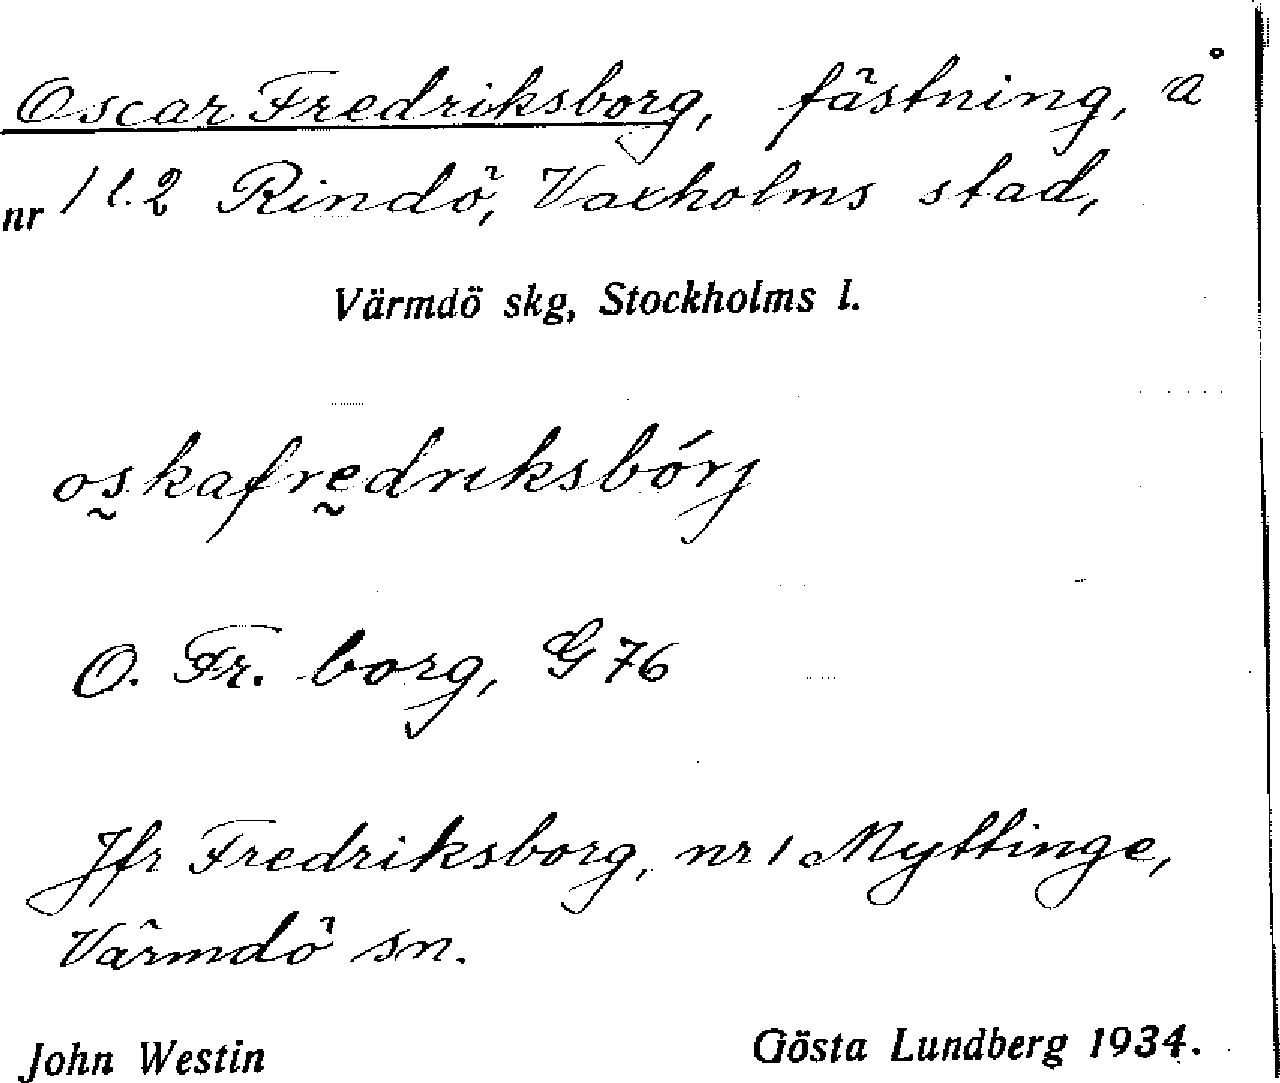 Oscar Fredriksborg, fästning, å
nr 1 l. 2 Rindö, Vaxholms stad,
Värmdö skg, Stockholms l.
os̰kafrḛdriksbórj
O. Fr. borg, G 76
Jfr Fredriksborg, nr 1 Myttinge,
Värmdö sn.
John Westin Gösta Lundberg 1934.